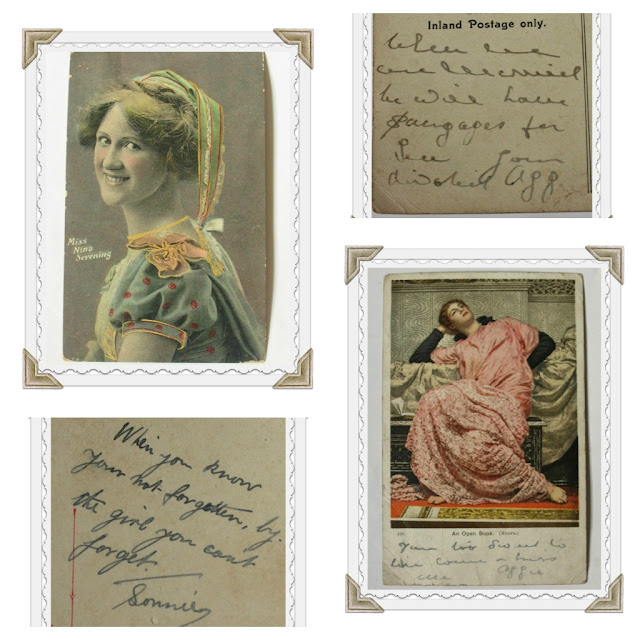 Miss
Nina
Sevening
Inland Postage only.
When we
are Married
we will have
Saugages for
Tea your
devoted Agg
When you know
your not forgotten, by
the girl you cant
forget.
Sonnie
An Open Book. (Moore)
Your too Sweet to
Aggie